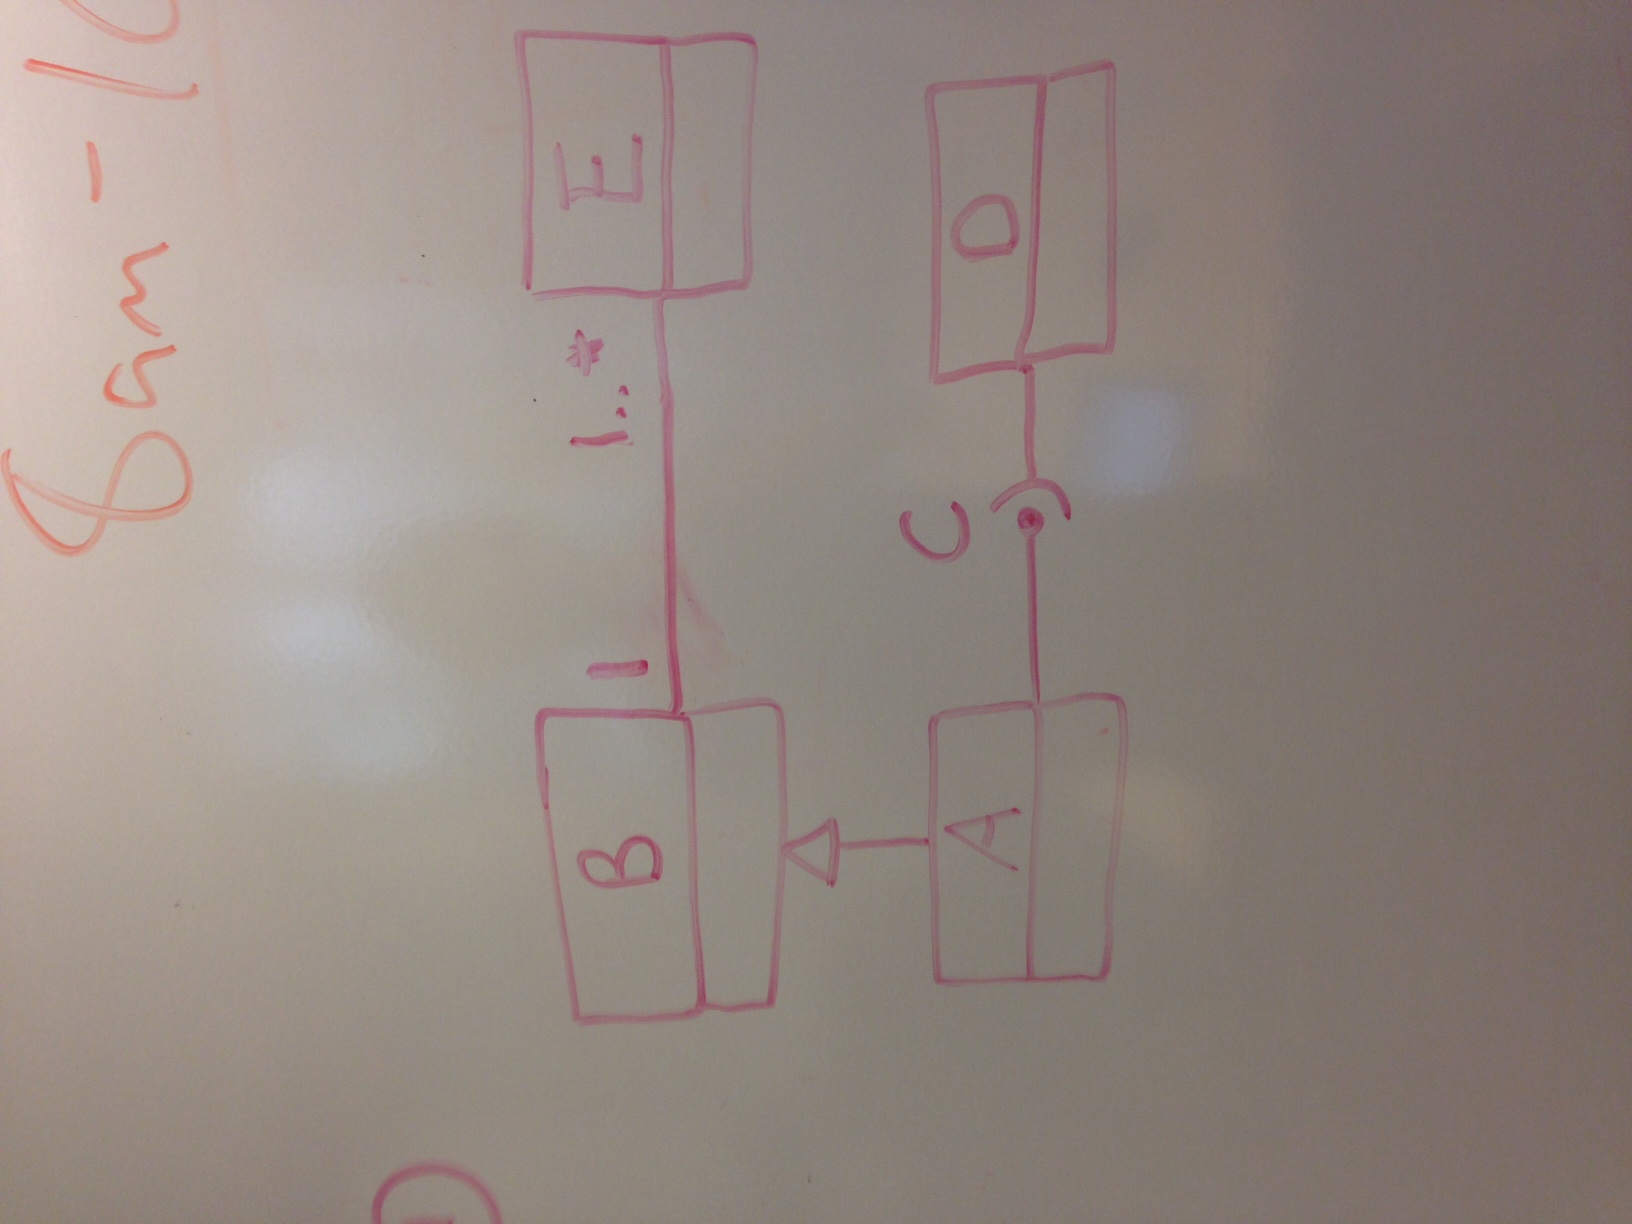 8am-1
B 1 1..* E
C
A D